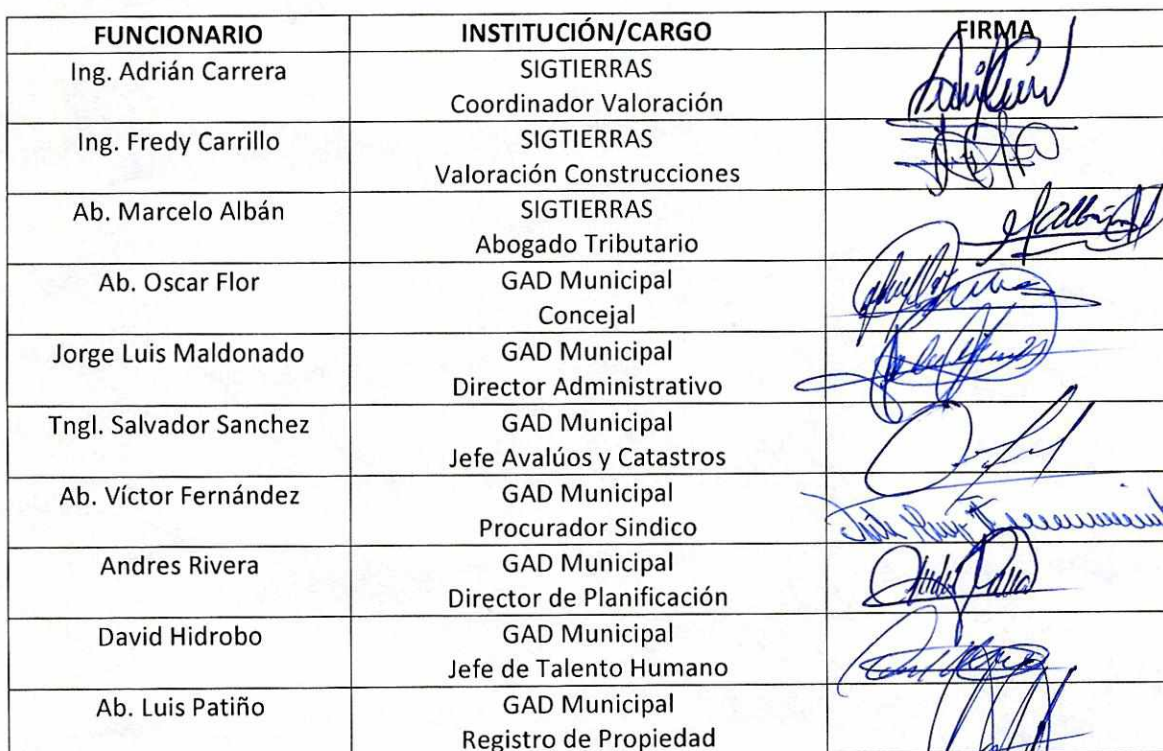 FUNCIONARIO INSTITUCIÓN/CARGO FIRMA
Ing. Adrián Carrera SIGTIERRAS
Coordinador Valoración
Ing. Fredy Carrillo SIGTIERRAS
Valoración Construcciones
Ab. Marcelo Albán SIGTIERRAS
Abogado Tributario
Ab. Oscar Flor GAD Municipal
Concejal
Jorge Luis Maldonado GAD Municipal
Director Administrativo
Tngl. Salvador Sanchez GAD Municipal
Jefe Avalúos y Catastros
Ab. Víctor Fernández GAD Municipal
Procurador Sindico
Andres Rivera GAD Municipal
Director de Planificación
David Hidrobo GAD Municipal
Jefe de Talento Humano
Ab. Luis Patiño GAD Municipal
Registro de Propiedad